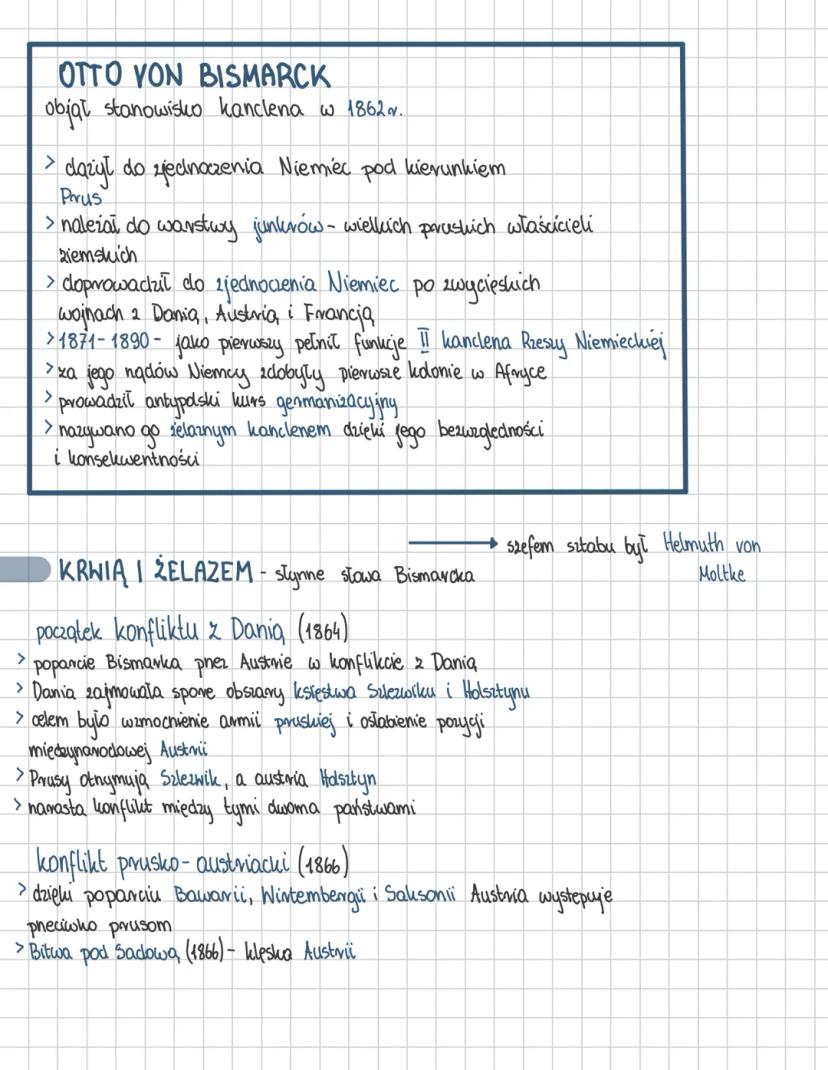 OTTO VON BISMARCK
objął stanowisko kanclerza w 1862r.
> dążył do zjednoczenia Niemiec pod kierunkiem
Prus
> należał do warstwy junkrów - wielkich pruskich właścicieli
ziemskich
> doprowadził do zjednoczenia Niemiec po zwycięskich
wojnach z Danią, Austrią i Francją
> 1871-1890 - jako pierwszy pełnił funkcje II kanclerza Rzeszy Niemieckiej
> za jego rządów Niemcy zdobyły pierwsze kolonie w Afryce
> prowadził antypolski kurs germanizacyjny
> nazywano go żelaznym kanclerzem dzięki jego bezwzględności
i konsekwentności
→ szefem sztabu był Helmuth von
Moltke
KRWIĄ I ŻELAZEM - słynne słowa Bismarcka
początek konfliktu z Danią (1864)
> poparcie Bismarka przez Austrie w konflikcie z Danią
> Dania zajmowała spore obszary księstwa Szlezwiku i Holsztynu
> celem było wzmocnienie armii pruskiej i osłabienie pozycji
międzynarodowej Austrii
> Prusy otrzymują Szlezwik, a austria Holsztyn
> narasta konflikt między tymi dwoma państwami
konflikt prusko-austriacki (1866)
> dzięki poparciu Bawarii, Wirtembergii i Saksonii Austria występuje
przeciwko prusom
> Bitwa pod Sadową (1866) - klęska Austrii